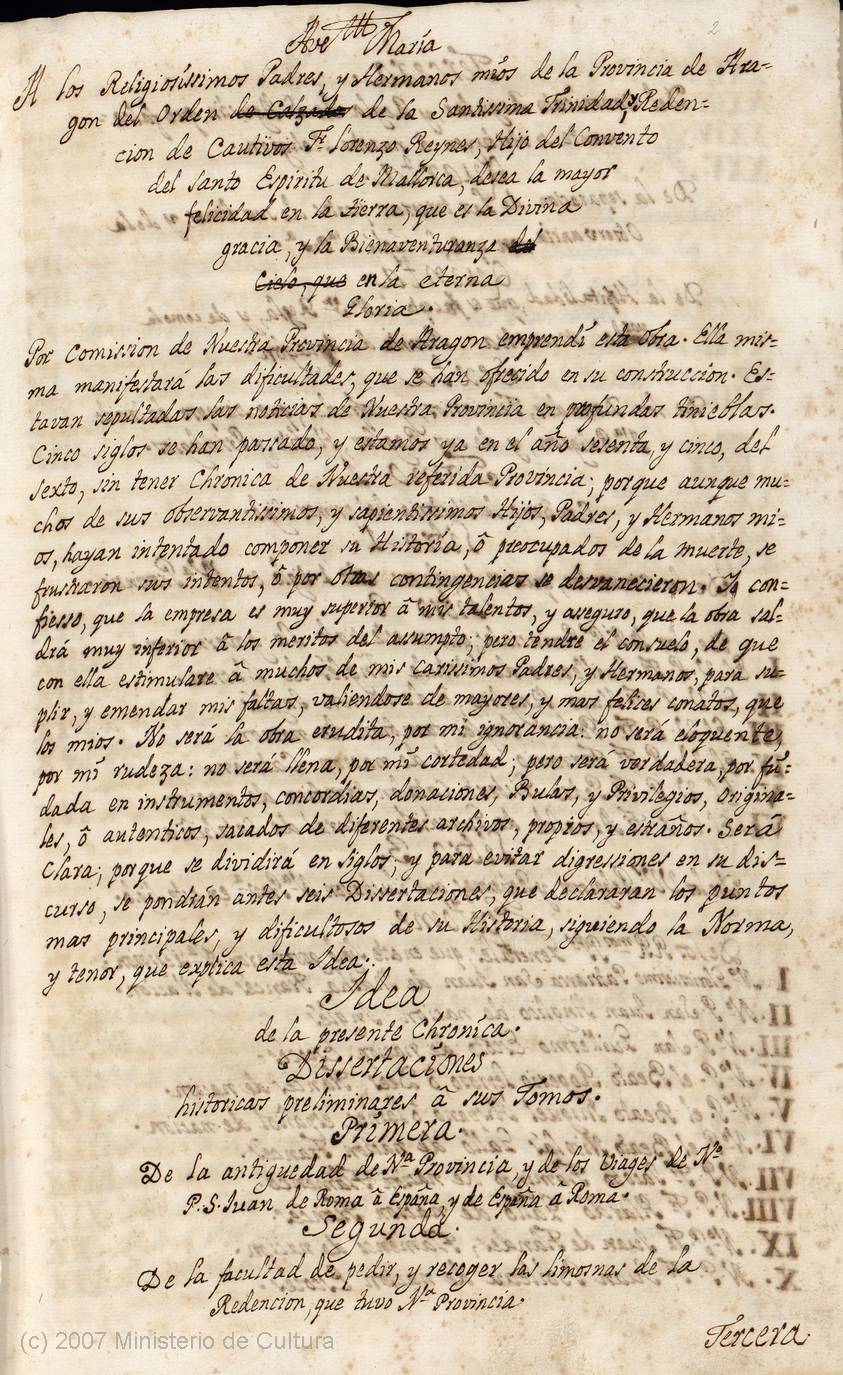 2
Ave Maria
A los Religiosíssimos Padres, y Hermanos mios de la Provincia de Ara-
gon del Orden de Calzados de la Santissima Trinidad, y Reden-
cion de Cautivos Fr. Lorenzo Reynes, Hijo del Convento
del Santo Espiritu de Mallorca, desea la mayor
felicidad en la tierra, que es la Divina
gracia, y la Bienaventuranza del
Cielo, que en la eterna
Gloria.
Por Comission de Nuestra Provincia de Aragon emprendí esta obra. Ella mis-
ma manifestará las dificultades, que se han ofrecido en su construccion. Es-
tavan sepultadas las noticias de Nuestra Provincia en profundas tinieblas.
Cinco siglos se han passado, y estamos ya en el año sesenta, y cinco, del
sexto, sin tener Chronica de Nuestra referida Provincia; porque aunque mu-
chos de sus observantissimos, y sapientissimos Hijos, Padres, y Hermanos mi-
os, hayan intentado componer su Historia, ô preocupados de la muerte, se
frustraron sus intentos, ô por otras contingencias se desvanecieron. Yo con-
fiesso, que la empresa es muy superior â mis talentos, y asseguro, que la obra sal-
drá muy inferior â los meritos del assumpto; pero tendré el consuelo, de que
con ella estimulare â muchos de mis carissimos Padres, y Hermanos, para su-
plir, y emendar mis faltas, valiendose de mayores, y mas felices conatos, que
los mios. No será la obra erudita, por mi ignorancia: no será eloquente,
por mi rudeza: no será llena, por mi cortedad; pero será verdadera, por fun-
dada en instrumentos, concordias, donaciones, Bulas, y Privilegios, origina-
les, ô autenticos, sacados de diferentes archivos, propios, y estraños. Será
Clara; porque se dividirá en siglos; y para evitar digressiones en su dis-
curso, se pondrán antes seis Dissertaciones, que declararan los puntos
mas principales, y dificultosos de su Historia, siguiendo la Norma,
y tenor, que explica esta Idea.
Idea
de la presente Chronica.
Dissertaciones
historicas preliminares â sus Tomos.
Primera.
De la antiguedad de Nª Provincia, y de los Viages de Nº
P. S. Juan de Roma â España, y de España â Roma.
Segunda.
De la facultad de pedir, y recoger las limosnas de la
Redencion, que tuvo Nª Provincia.
Tercera.
(c) 2007 Ministerio de Cultura